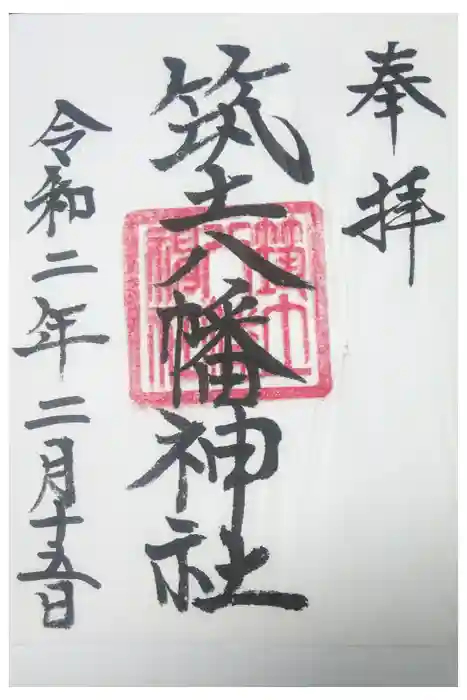 奉拝
筑土八幡神社
令和二年二月十五日